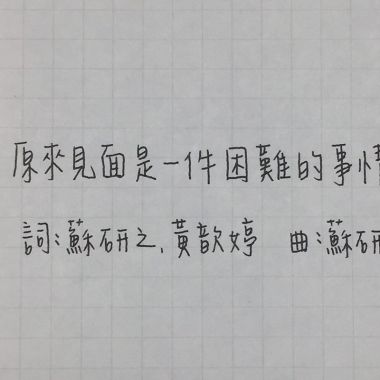 原來見面是一件困難的事情
詞:蘇研之、黃歆婷 曲:蘇研